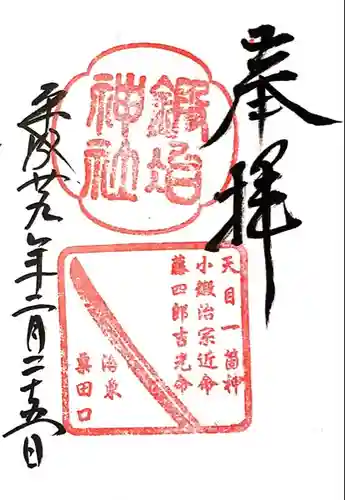 奉拝
鍛冶
神社
天目一箇神
小鍛冶宗近命
藤四郎吉光命
洛東
粟田口
平成廿九年二月二十五日